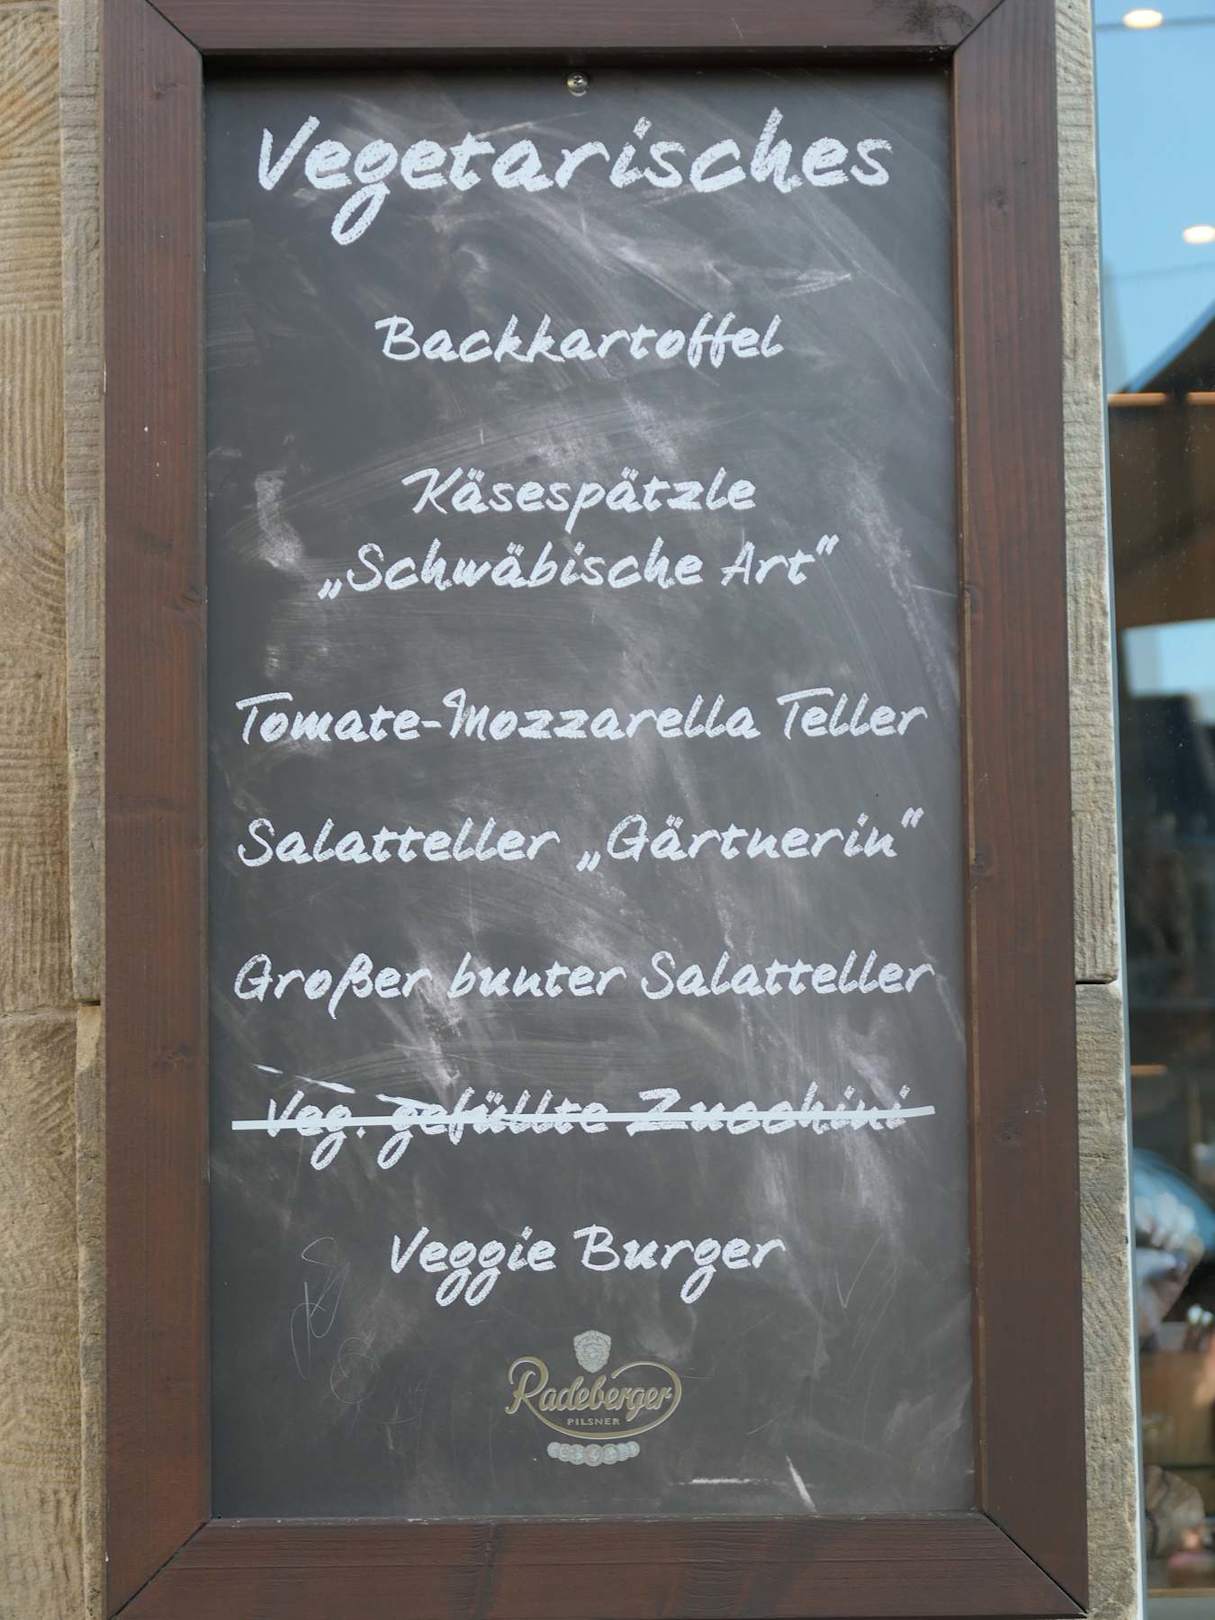 Vegetarisches
Backkartoffel
Käsespätzle
„Schwäbische Art“
Tomate-Mozzarella Teller
Salatteller „Gärtnerin“
Großer bunter Salatteller
Veg. gefüllte Zucchini
Veggie Burger
Radeberger
PILSNER